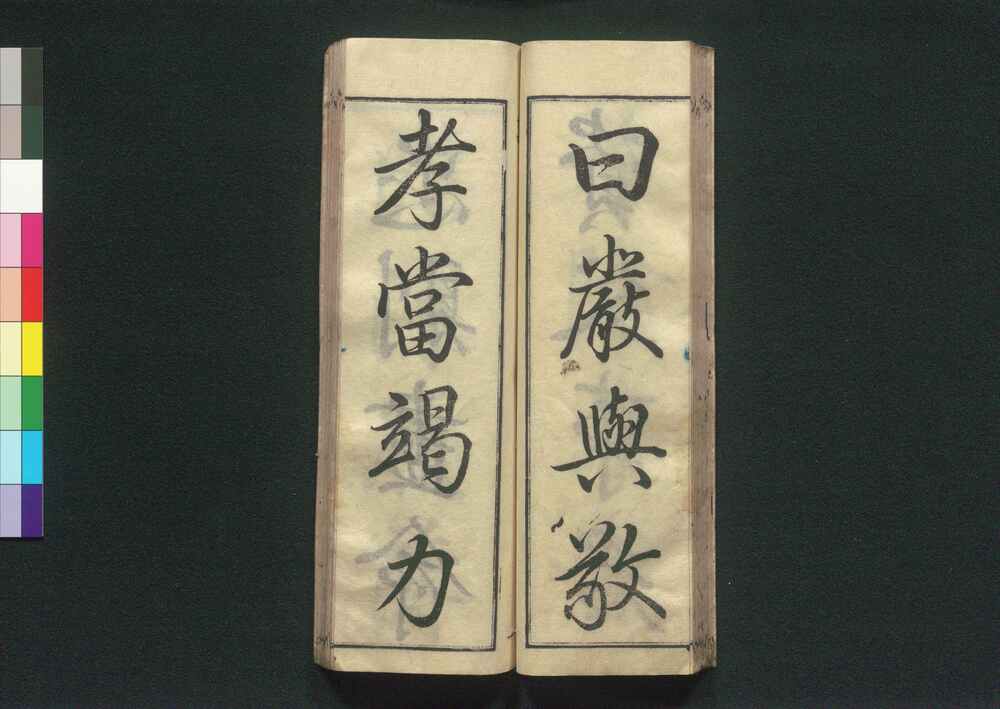 曰嚴與敬
孝當竭力